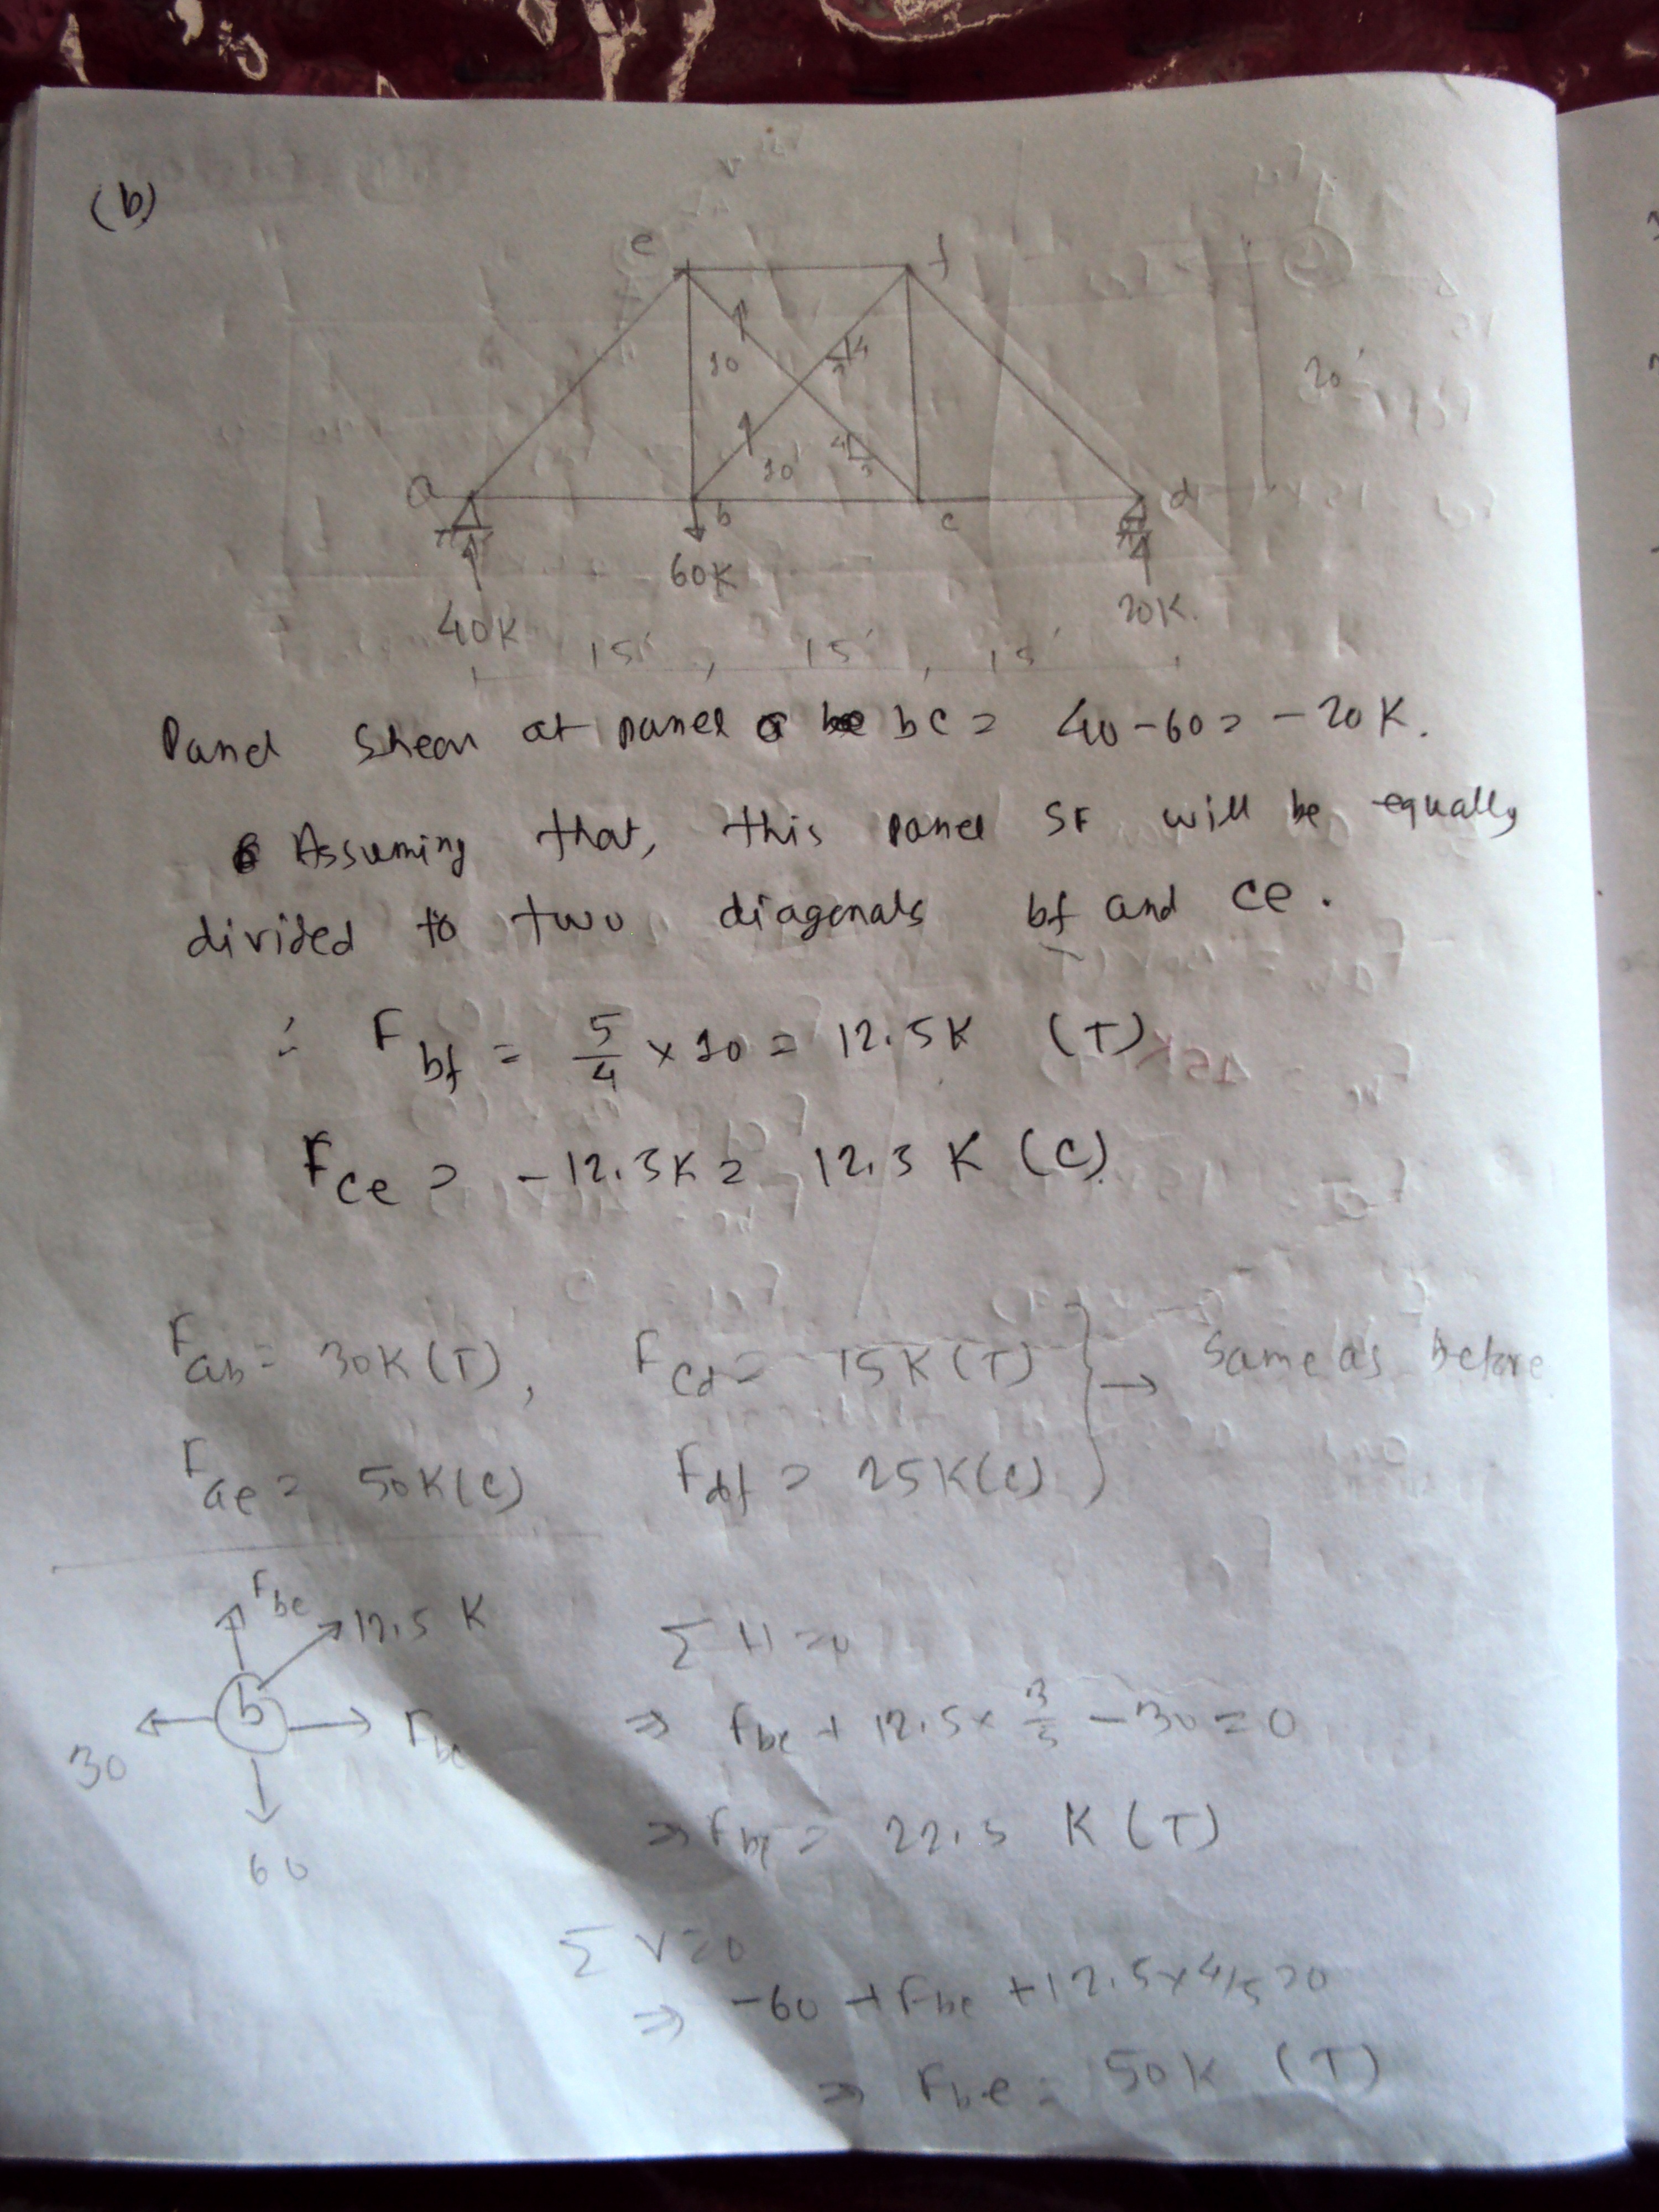 (b)
e f
10 4 3
10 4 3
20'
a b c d
60K
40K 20K.
15' , 15' , 15'
Panel Shear at panel bc = 40-60 = -20K.
Assuming that, this panel SF will be equally
divided to two diagonals bf and ce.
∴ Fbf = 5/4 × 10 = 12.5K (T)
Fce = -12.5K = 12.5 K (C)
Fab = 30K (T), Fcd = 15K (T) → Same as before
Fae = 50K (C) Fdf = 25K (C)
Fbe 12.5 K
b
30 Fbc
60
Σ H = 0
⇒ Fbc + 12.5 × 3/5 - 30 = 0
⇒ Fbc = 22.5 K (T)
Σ V = 0
⇒ -60 + Fbe + 12.5 × 4/5 = 0
⇒ Fbe = 50K (T)